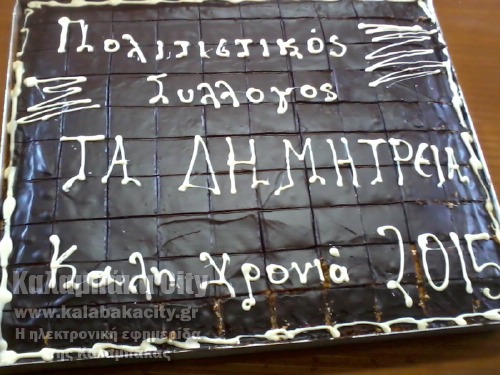 Πολιτιστικός
Σύλλογος
ΤΑ ΔΗΜΗΤΡΕΙΑ
Καλή Χρονιά 2015
Καλαμπάκα City
www.kalabakacity.gr
Η ηλεκτρονική εφημερίδα
της Καλαμπάκας